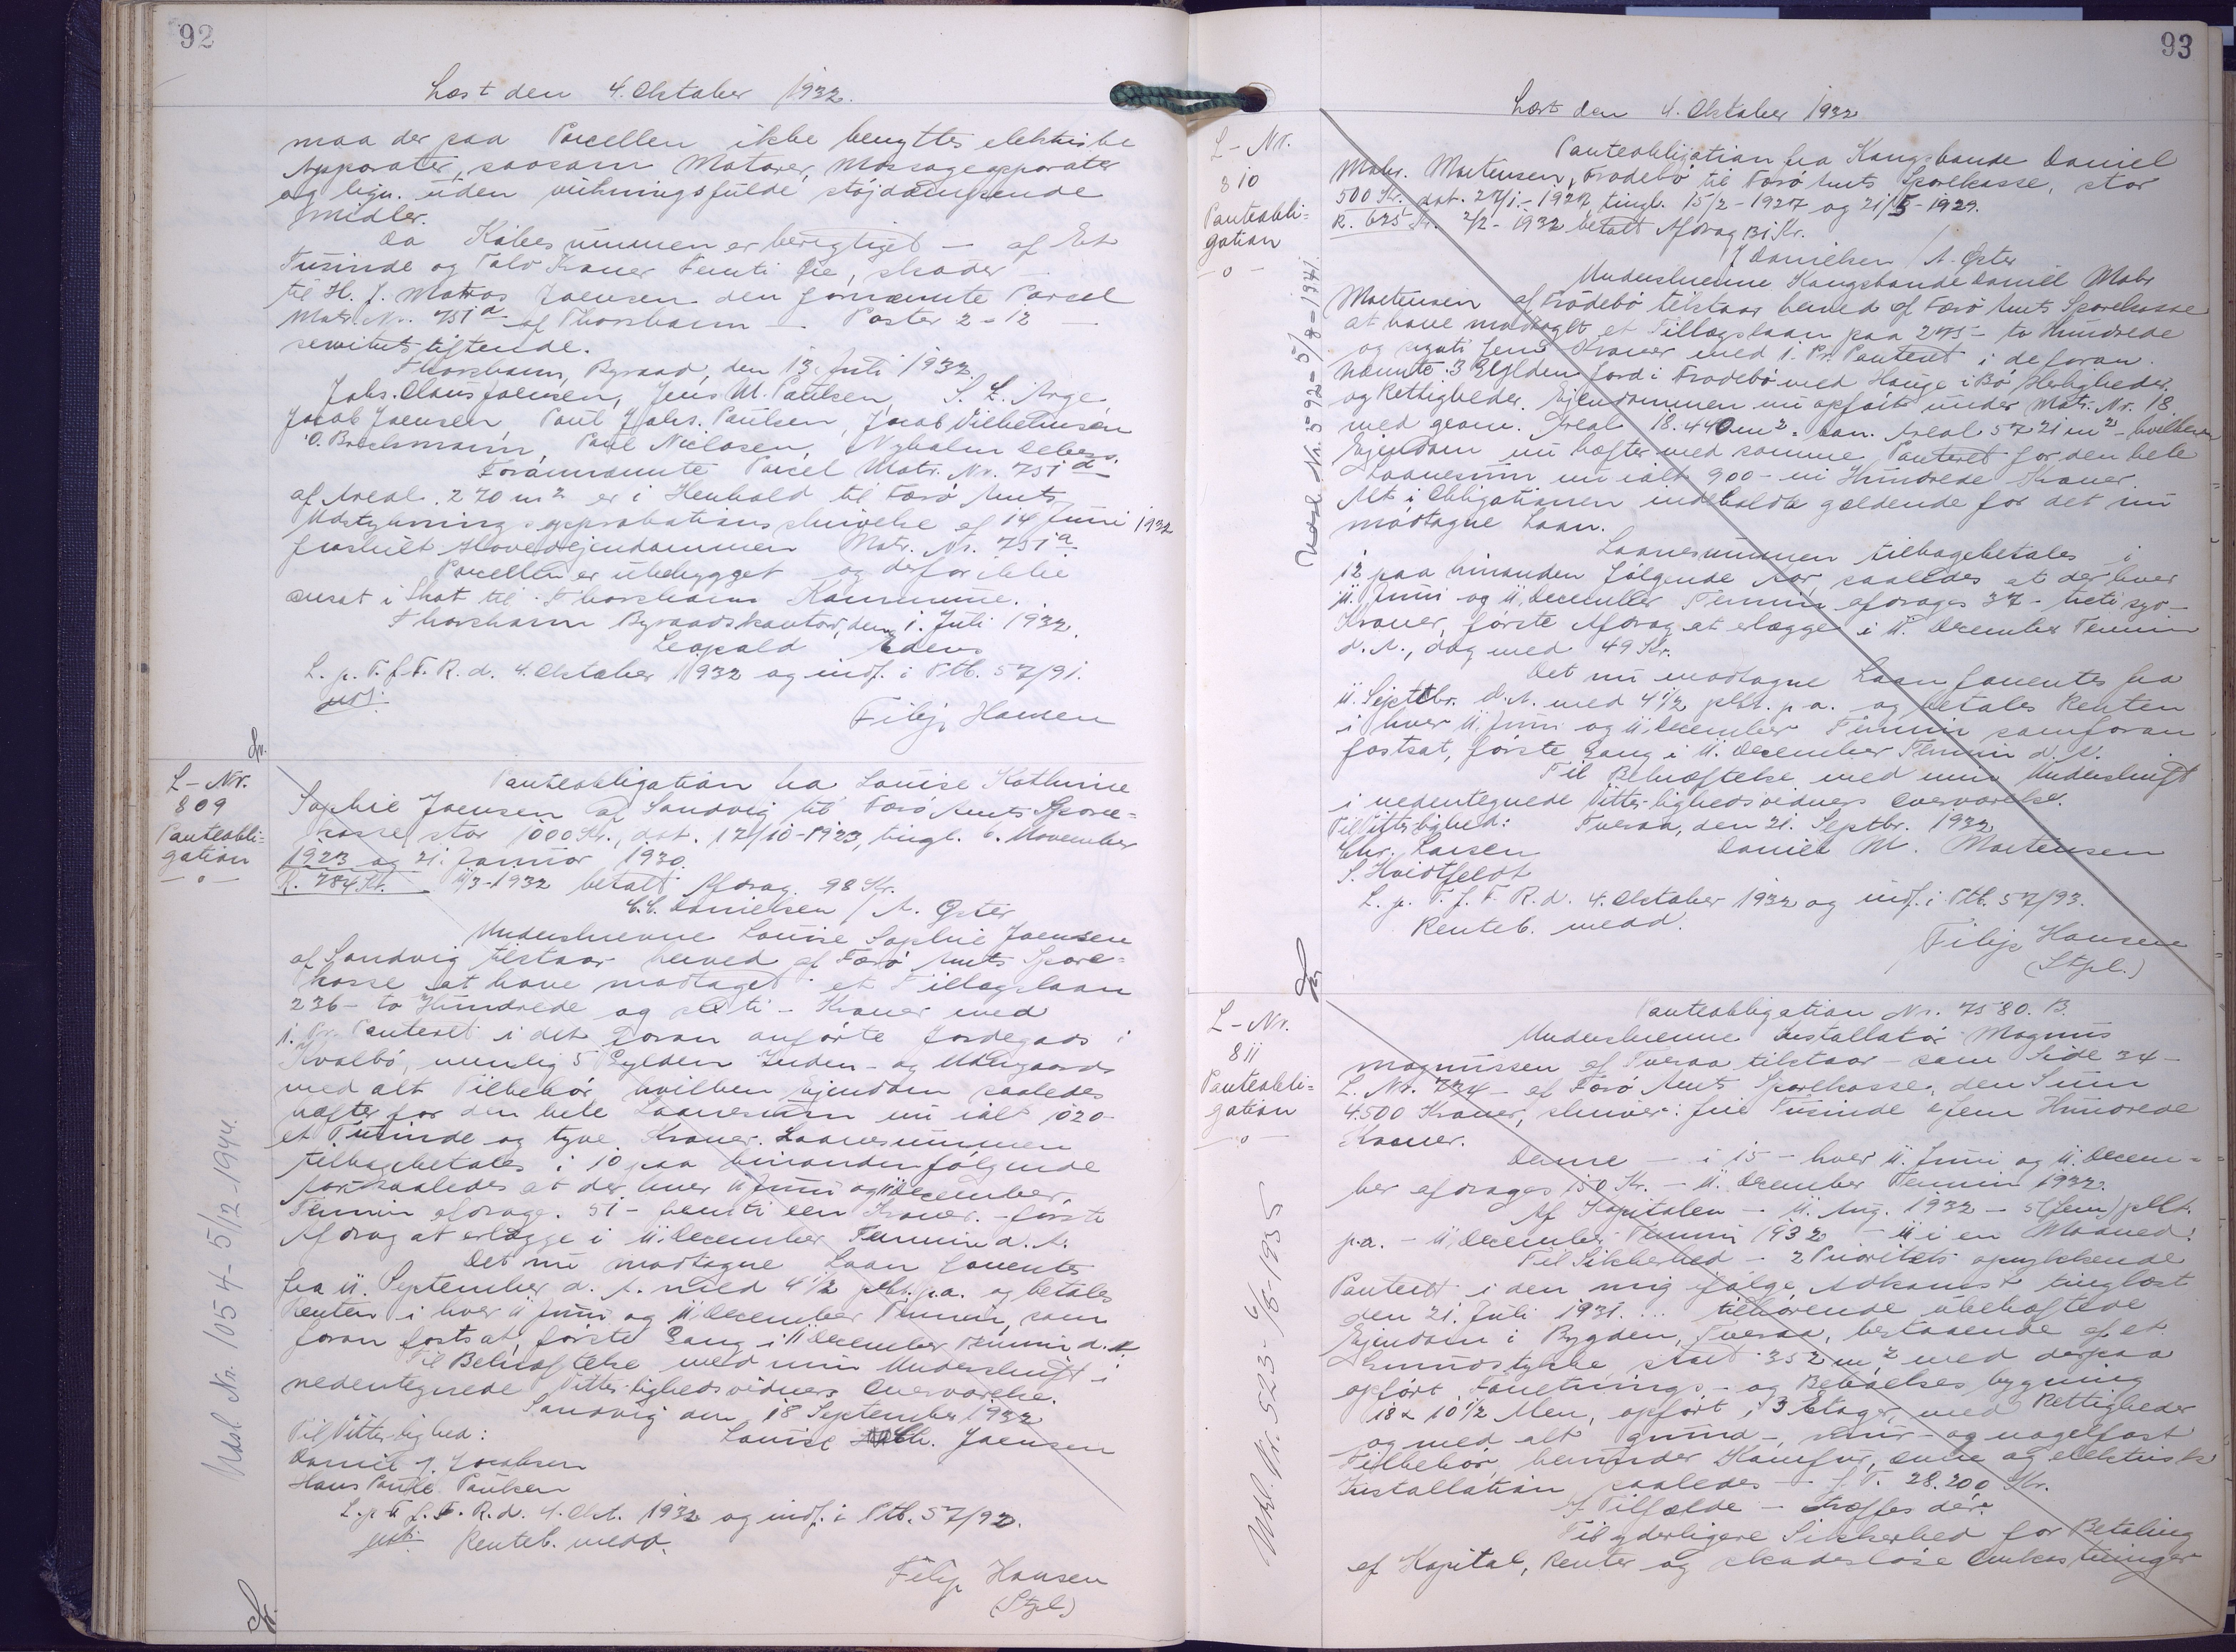 92
Læst den 4. Oktober 1932.
maa der paa Parcellen ikke benyttes elektriske
Apparater, saasom Motorer, Massageapparater
og lign. uden virkningsfulde støjdæmpende
Midler.
Da Købesummen er berigtiget - af Et
Tusinde og Tolv Kroner Femti Øre, skøder -
til H. J. Matras Joensen den fornævnte Parcel
Matr. Nr. 751 d af Thorshavn - Poster 2-12 -
servitutstiftende.
Thorshavn, Byraad, den 13. Juli 1932.
Johs. Claus Joensen, Jens M. Poulsen, S. L. Arge,
Jacob Joensen, Poul Johs. Poulsen, Jacob Vilhelmsen
O. Brechsmann, Poul Niclasen,
Forannævnte Parcel Matr. Nr. 751 d
af Areal 270 m2 er i Henhold til Færø Amts
Udstykningsapprobationsskrivelse af 14 Juni 1932
fraskilt Hovedejendommen Matr. Nr. 751 a
Parcellen er ubebygget og derfor ikke
ansat i Skat til Thorshavns Kommune.
Thorshavn Byraadskontor, den 1. Juli 1932.
Leopold Edens
L. p. T. f. F. R. d. 4. Oktober 1932 og indf. i Ptb. 57/91.
Filip Hansen
L-Nr.
809
Panteobli=
gation
-o-
Panteobligation fra Louise Kathrine
Sophie Joensen af Sandvig til Færø Amts Spare=
kasse, stor 1000 Kr., dat. 17/10-1923, tingl. 6. November
1923 og 21. Januar 1930.
R. 784 Kr. 11/3-1932 betalt Afdrag 98 Kr.
C.C. Danielsen / A. Øster
Underskrevne Louise Sophie Joensen
af Sandvig tilstaar herved af Færø Amts Spare=
kasse at have modtaget et Tillægslaan
236 - to Hundrede og - Kroner med
1. Pr. Panteret i det foran anførte Jordegods i
Kvalbø, nemlig 5 Gylden Inden- og Udengaards
med alt Tilbehør hvilken Ejendom saaledes
hæfter for den hele Laanesum nu ialt 1020 -
et Tusinde og tyve Kroner. Laanesummen
tilbagebetales i 10 paa hinanden følgende
Aar saaledes at der hver 11 Juni og 11 December
Termin afdrages 51 - femti een Kroner - første
Afdrag at erlægge i 11. December Termin d. A.
Det nu modtagne Laan forrentes
fra 11. September d. A. med 4 1/2 pCt. p.a. og betales
Renten i hver 11 Juni og 11 December Termin, som
foran fastsat, første Gang i 11 December Termin d. A.
Til Bekræftelse med min Underskrift i
nedentegnede Vitterlighedsvidners Overværelse.
Sandvig den 18 September 1932
Til Vitterlighed: Louise Joensen
Daniel J. Jacobsen
Hans Poule Poulsen
L. p. T. f. F. R. d. 4. Okt. 1932 og indf. i Ptb. 57/92.
Renteb. medd.
Filip Hansen
(Stpl.)
Udsl. Nr. 1054-5/12-1944.
93
Læst den 4. Oktober 1932
L-Nr.
810
Panteobli=
gation
-o-
Panteobligation fra Kongsbonde Daniel
Mohr. Mortensen, Frodebø til Færø Amts Sparekasse, stor
500 Kr. dat. 27/1-1927 tingl. 15/2-1927 og 21/5-1929.
R. 625 Kr. 2/2-1932 betalt Afdrag 131 Kr.
J Danielsen / A. Øster
Underskrevne Kongsbonde Daniel Mohr
Mortensen af Frodebø tilstaar herved af Færø Amts Sparekasse
at have modtaget et Tillægslaan paa 275 - to Hundrede
og syvti fem Kroner med 1. Pr. Panteret i de foran
nævnte 3 Gylden Jord i Frodebø med Hauge i Bø Herligheder
og Rettigheder. Ejendommen nu opført under Matr. Nr. 18
med geom. Areal 18.440 m2 = kon. Areal 5721 m2 - hvilken
Ejendom nu hæfter med samme Panteret for den hele
Laanesum nu ialt 900 - ni Hundrede Kroner.
Alt i Obligationen indeholdt gældende for det nu
modtagne Laan.
Laanesummen tilbagebetales i
12 paa hinanden følgende Aar saaledes at der hver
11. Juni og 11. December Termin afdrages 37 - treti syv -
Kroner, første Afdrag at erlægge i 11. December Termin
d. A., dog med 49 Kr.
Det nu modtagne Laan forrentes fra
11. Septbr. d. A. med 4 1/2 pCt. p.a. og betales Renten
i hver 11. Juni og 11. December Termin som foran
fastsat, første Gang i 11. December Termin d. A.
Til Bekræftelse med min Underskrift
i nedentegnede Vitterlighedsvidners Overværelse.
Til Vitterlighed: Tveraa, den 21. Septbr. 1932
Chr. Larsen Daniel M. Mortensen
S. Hvidtfeldt
L. p. T. f. F. R. d. 4. Oktober 1932 og indf. i Ptb. 57/93.
Renteb. medd.
Filip Hansen
(Stpl.)
Udsl. Nr. 592-5/8-1941.
L-Nr.
811
Panteobli=
gation
-o-
Panteobligation Nr. 7580. B.
Underskrevne Installatør Magnus
Magnussen af Tveraa tilstaar - som Side 34 -
L. Nr. 734 - af Færø Amts Sparekasse, den Sum
4.500 Kroner, skriver: fire Tusinde fem Hundrede
Kroner.
Denne - i 15 - hver 11. Juni og 11. Decem=
ber afdrages 150 Kr. - 11. December Termin 1932.
Af Kapitalen - 11. Aug. 1932 - 5 (fem) pCt.
p.a. - 11. December Termin 1932 - 11 i en Maaned.
Til Sikkerhed - 2 Prioritets oprykkende
Panteret i den mig ifølge Adkomst tinglæst
den 21. Juli 1931... tilhørende ubehæftede
Ejendom i Bygden, Tveraa, bestaaende af et
Grundstykke stort 352 m2 med derpaa
opført Forretnings- og Beboelsesbygning
18 x 10 1/2 Alen, opført i 3 Etager, med Rettigheder
og med alt grund-, mur- og nagelfast
Tilbehør, herunder Komfur, Ovne og elektrisk
Installation saaledes - f. T. 28.200 Kr.
I Tilfælde - træffes der.
Til yderligere Sikkerhed for Betaling
af Kapital, Renter og skadesløse Omkostninger
Udsl. Nr. 523-6/6-1935